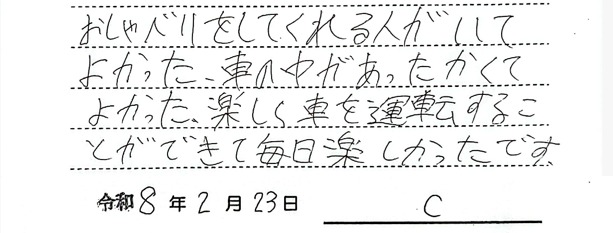 おしゃべりをしてくれる人がいて
よかった、車の中があったかくて
よかった、楽しく車を運転するこ
とができて毎日楽しかったです.
令和8年2月23日 C